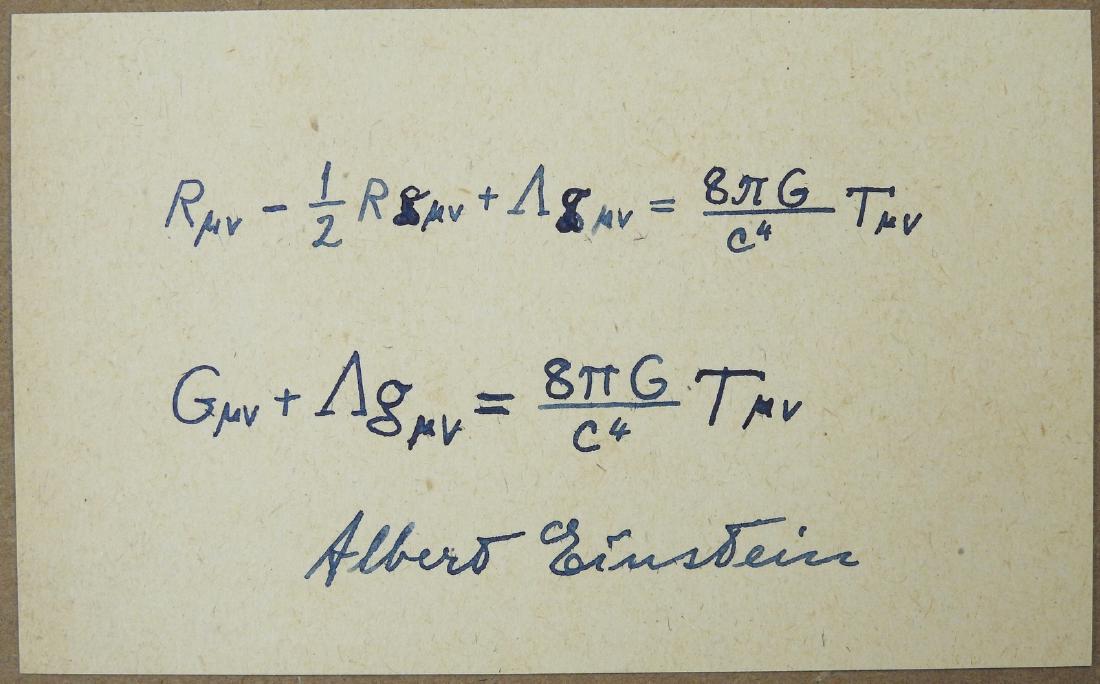 Rμν - 1/2 R gμν + Λ gμν = 8πG/c⁴ Tμν
Gμν + Λgμν = 8πG/c⁴ Tμν
Albert Einstein